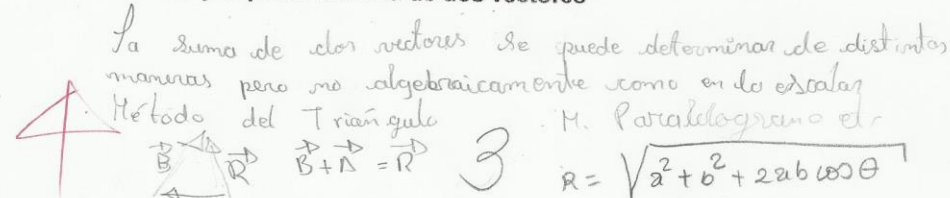 dos vectores
La suma de dos vectores se puede determinar de distintas
maneras pero no algebraicamente como en lo escalar
4 Método del Triángulo M. Paralelogramo el
B A R B + A = R 3 R = √a² + b² + 2ab cos θ